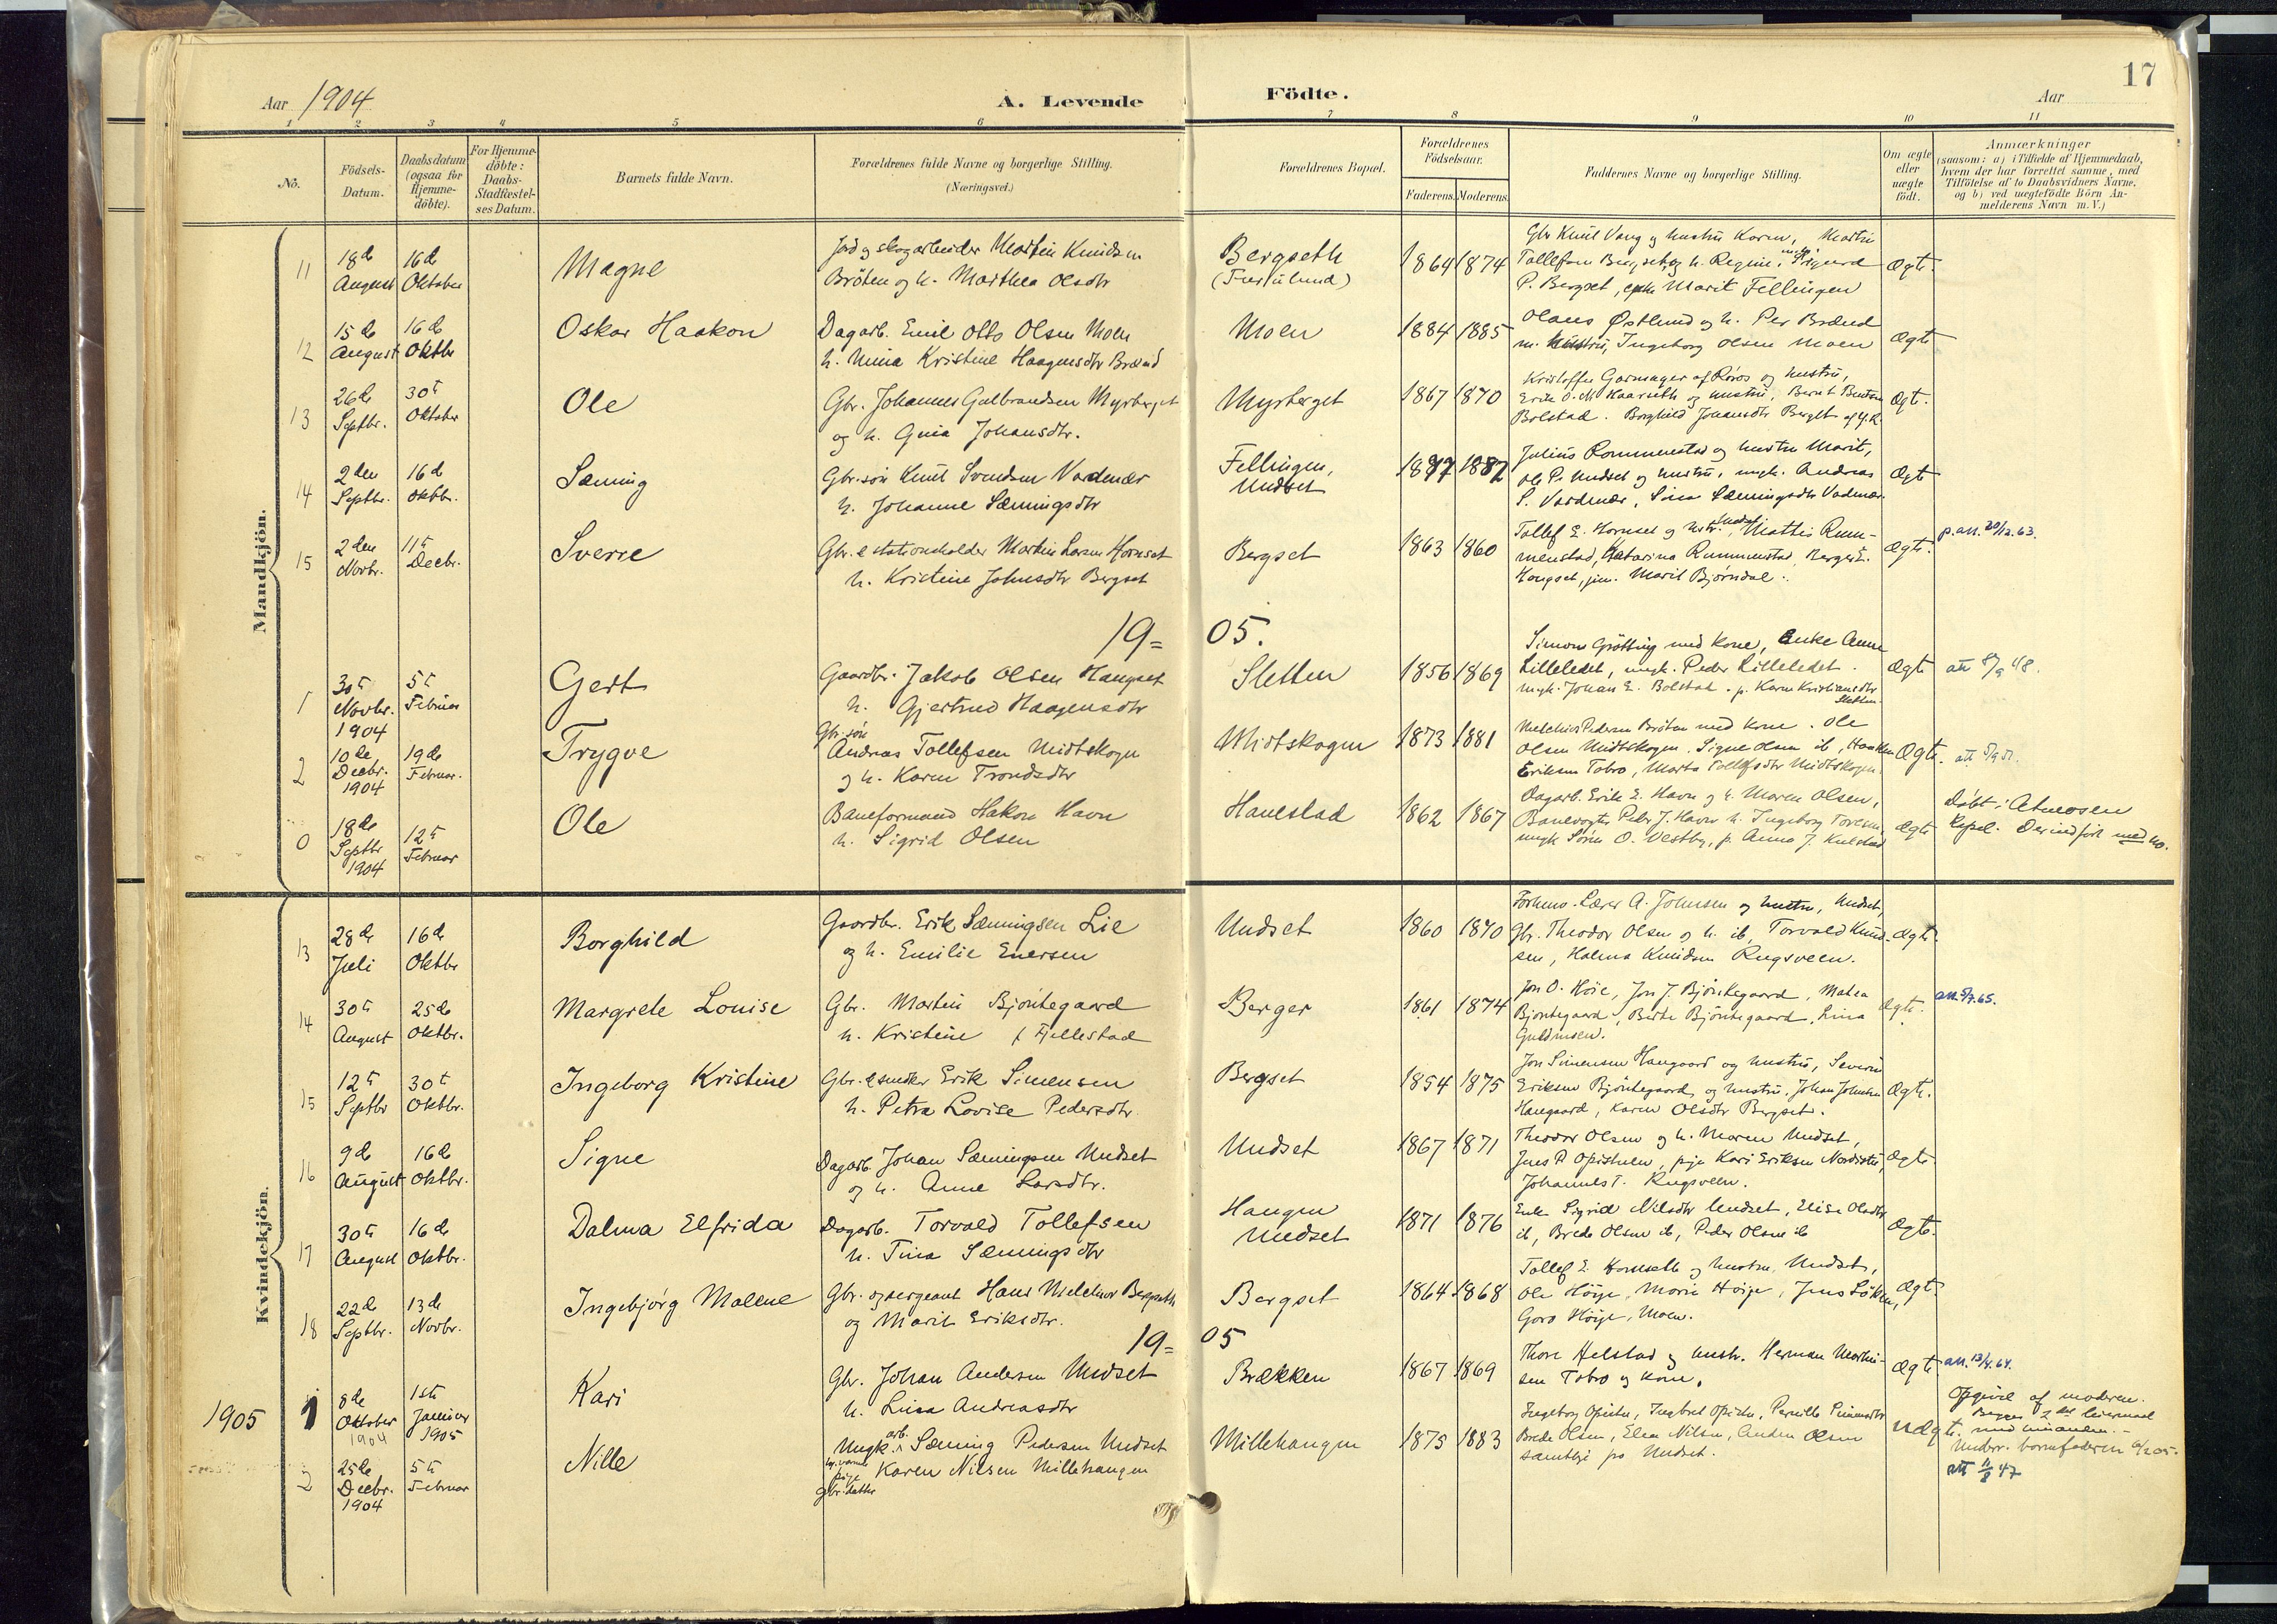 17
Aar 1904
A. Levende
Födte.
Aar
1 2 3 4 5 6 7 8 9 10 11
No.
Födsels-Datum.
Daabsdatum (ogsaa for Hjemme-döbte).
For Hjemme-döbte: Daabs-Stadfæstel-ses Datum.
Barnets fulde Navn.
Forældrenes fulde Navne og borgerlige Stilling.
(Næringsvei.)
Forældrenes Bopæl.
Forældrenes Födselsaar.
Faderens. Moderens.
Faddernes Navne og borgerlige Stilling.
Om ægte eller uægte födt.
Anmærkninger
(saasom: a) i Tilfælde af Hjemmedaab,
hvem der har forrettet samme, med
Tilföielse af to Daabsvidners Navne,
og b) ved uægtefödte Börn An-
melderens Navn m. V.)
Mandkjön.
11 18de August 16de Oktober Magne
Jord og skogarbeider Martin Knudsen
Bröten og h. Marthea Olsdtr
Bergseth
1864 1874
Gbr Knut Vang og hustru Karen, Martin
Tollefsen Bergset og h. Regine, Sigurd
P. Bergset, Marit Fellingen
Ægte.
12 15de August 16de Oktbr Oskar Haakon
Dagarb. Emil Otto Olsen Moen
h. Kristine Haagensdtr Brænd
Moen
1884 1885
Olaus Østlund og h. Per Brænd
m. hustru, Ingeborg Olsen Moen
Ægte
13 26de Septbr. 30te Oktober Ole
Gbr. Johannes Gulbrandsen Myrberget
og h. Gina Johansdtr.
Myrberget
1867 1870
Kristoffer Garmager af Röros og hustru,
Erik O. M. Kaarseth og hustru, Bernt Bentsen
Bolstad. Borghild Johansdtr Berget
Ægte.
14 2den Septbr. 16de Oktbr. Sæming
Gbr.sön Knut Svendsen Vardenær
h. Johanne Sæmingsdtr
Fellingen, Undset
1887 1882
Julius Rommenstad og hustru Marit,
Ole P. Undset og hustru, ungk. Andreas
S. Vardenær, Lina Sæmingsdtr Vadenær
Ægte
15 2den Novbr. 11te Decbr. Sverre
Gbr. & stationsholder Martin Larsen Hornset
h. Kristine Johnsdtr Bergset
Bergset
1863 1860
Tollef E. Hornset og hustr. Undset, Mattis Rum-
menstad, Katarina Rummenstad, Berger E.
Haugset, jun. Marit Bjørndal.
Ægte.
p. att. 30/12.63.
19= 05.
1 30te Novbr. 1904 5te Februar Gert
Gaardbr. Jakob Olsen Haugset
h. Gjertrud Haagensdtr
Sletten
1856 1869
Simon Grötting med kone, Enke Anne
Lilleledet, ungk. Peder Lilleledet.
ungk. Johan E. Bolstad. p. Karen Kristiansdtr
Sletten
Ægte
att 8/9 48.
2 10de Decbr. 1904 19de Februar. Trygve
Gbr.sön
Andreas Tollefsen Midtskogen
og h. Karen Trondsdtr
Midtskogen
1873 1881
Melchior Pedersen Bröten med kone. Ole
Olsen Midtskogen. Signe Olsen ib, Haakon
Eriksen Tobro, Marta Tollefsdtr Midtskogen.
Ægte.
att 5/9 51.
0 18de Septbr 1904 12te Februar Ole
Baneformand Hakon Havn
h. Sigrid Olsen
Hanestad
1862 1867
Dagarb. Erik E. Havn og h. Maren Olsen,
Banevogter Peder J. Havn h. Ingeborg Toresen,
ungk Sören O. Vestby, p. Anna J. Kulstad
Ægte
Döbt i Atneosen
Kapel. Der indfört med no.
Kvindekjön.
13 28de Juli 16de Oktbr Borghild
Gaardbr. Erik Sæmingsen Lie
og h. Emilie Enersen
Undset
1860 1870
Forhenv. Lærer A. Johnsen og hustru, Undset,
Gbr. Theodor Olsen og h. ib, Torvald Knud-
sen, Halma Knudsen Rugsveen.
Ægte.
14 30te August 25de Oktbr. Margrete Louise
Gbr. Martin Bjöntegaard
h. Kristine f Fjellestad
Berger
1861 1874
Jon O. Höie, Jon J. Bjöntegaard, Matea
Bjöntegaard, Berte Bjöntegaard, Lina
Guldmoen.
Ægte.
att. 5/7.65.
15 12te Septbr 30te Oktbr. Ingeborg Kristine
Gbr. & snedker Erik Simensen
h. Petra Lovise Pedersdtr.
Bergset
1854 1875
Jon Simensen Haugaard og hustru, Severin
Eriksen Bjöntegaard og hustru. Johan Johnsen
Haugaard, Karen Olsdtr Bergset.
Ægte.
16 9de August 16de Oktbr. Signe
Dagarb. Johan Sæmingsen Undset
og h. Anne Larsdtr.
Undset
1867 1871
Theodor Olsen og h. Maren Undset,
Jens P. Opistuen, pige Kari Eriksen Nordistu,
Johannes T. Rugsveen.
Ægte
17 30te August 16de Oktbr. Dalma Elfrida
Dagarb. Torvald Tollefsen
h. Tina Sæmingsdtr
Haugen Undset
1871 1876
Enke Sigrid Nilsdtr Undset, Elise Olsdtr
ib, Brede Olsen ib, Peder Olsen ib
Ægte.
18 22de Septbr. 13de Novbr. Ingebjørg Malene
Gbr. og sergeant Hans Melchior Bergseth
og Marit Eriksdtr.
Bergset
1864 1868
Tollef E. Hornseth og hustru, Undset,
Ole Höije, Marie Höije, Jens Löken,
Goro Höije, Moen.
Ægte
19= 05
1905
1 8de Oktober 1904 1ste Januar 1905 Kari
Gbr. Johan Andersen Undset
h. Lina Andreasdtr
Brækken
1867 1869
Thore Helstad og hustr. Herman Martin-
sen Tobro og kone.
Ægte
att. 13/4.64.
2 25de Decbr. 1904 5te Februar Nille
Ungk. arb. Sæming Pedersen Undset
pige Karen Nilsen Millehaugen
gbr.datter
Millehaugen
1875 1883
Ingeborg Opistu, Ingebret Opistu, Pernille Simensdtr
Brede Olsen, Elen Nilsen, Anders Olsen
samtlige pa Undset.
Uægte.
Opgivet af moderen.
Begges 2det leiermaal
med hinanden.
Underr. barnefaderen 6/2 05.
att 11/8 47